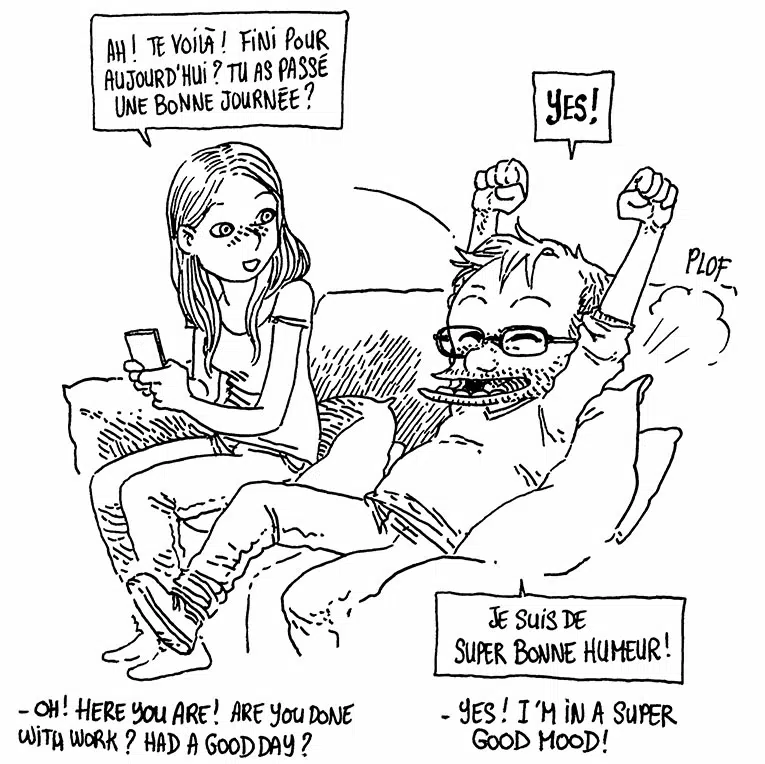 AH! TE VOILÀ! FINI POUR
AUJOURD'HUI? TU AS PASSÉ
UNE BONNE JOURNÉE?
YES!
PLOF
JE SUIS DE
SUPER BONNE HUMEUR!
- OH! HERE YOU ARE! ARE YOU DONE
WITH WORK? HAD A GOOD DAY?
- YES! I'M IN A SUPER
GOOD MOOD!